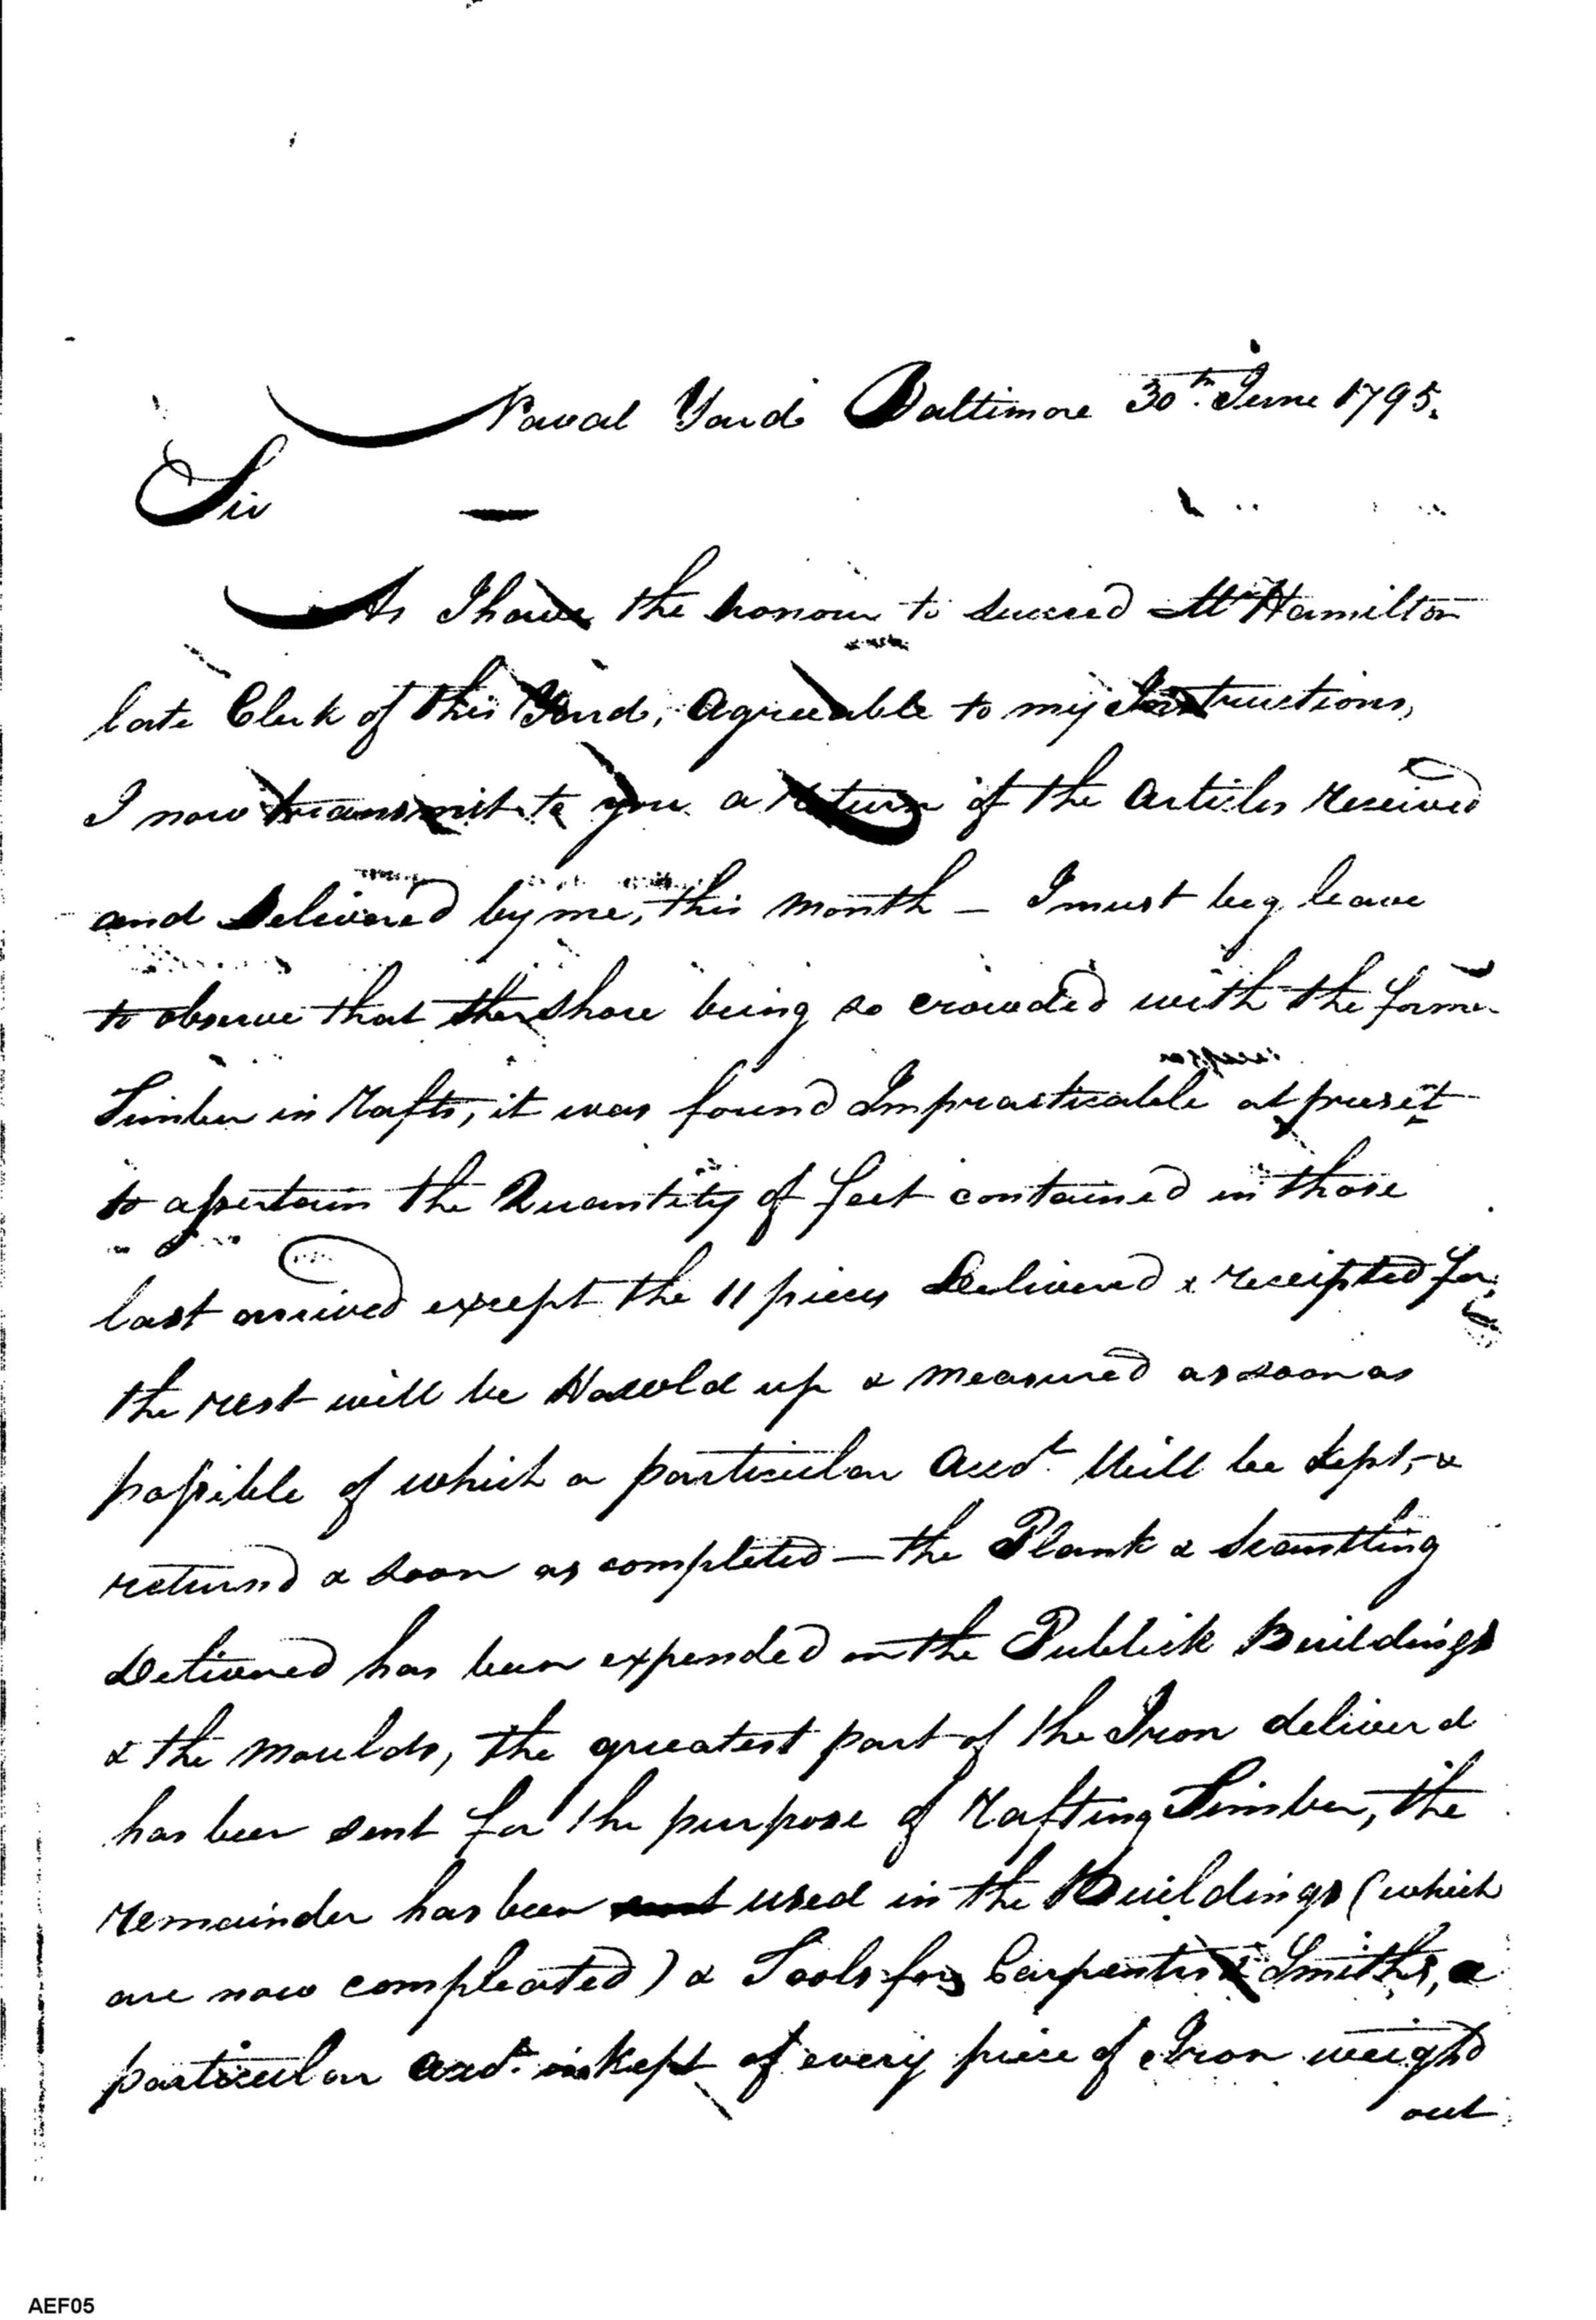 Naval Yard Baltimore 30th. June 1795.
Sir —
As I have the honour to succeed Mr Hamilton
late Clerk of this Yard, agreeable to my Instructions,
I now transmit to you a return of the Articles received
and Delivered by me, this month – I must beg leave
to observe that the Shore being so crowded with the former
Timber in Rafts, it was found Impracticable at present
to assertain the Quantity of feet contained in those
last arrived except the 11 pieces Delivered & receipted for,
the rest will be Hawld up & measured as soon as
possible of which a particular acct. Will be kept, &
returnd & soon as completed — the Plank & Scantling
Delivered has been expended on the Publick Buildings
& the moulds, the greatest part of the Iron deliver'd
has been sent for the purpose of Rafting Timber, the
remainder has been used in the Buildings (which
are now compleated) & Tools for Carpenters & Smiths, a
particular acct. is kept of every piece of Iron weighd
out
AEF05